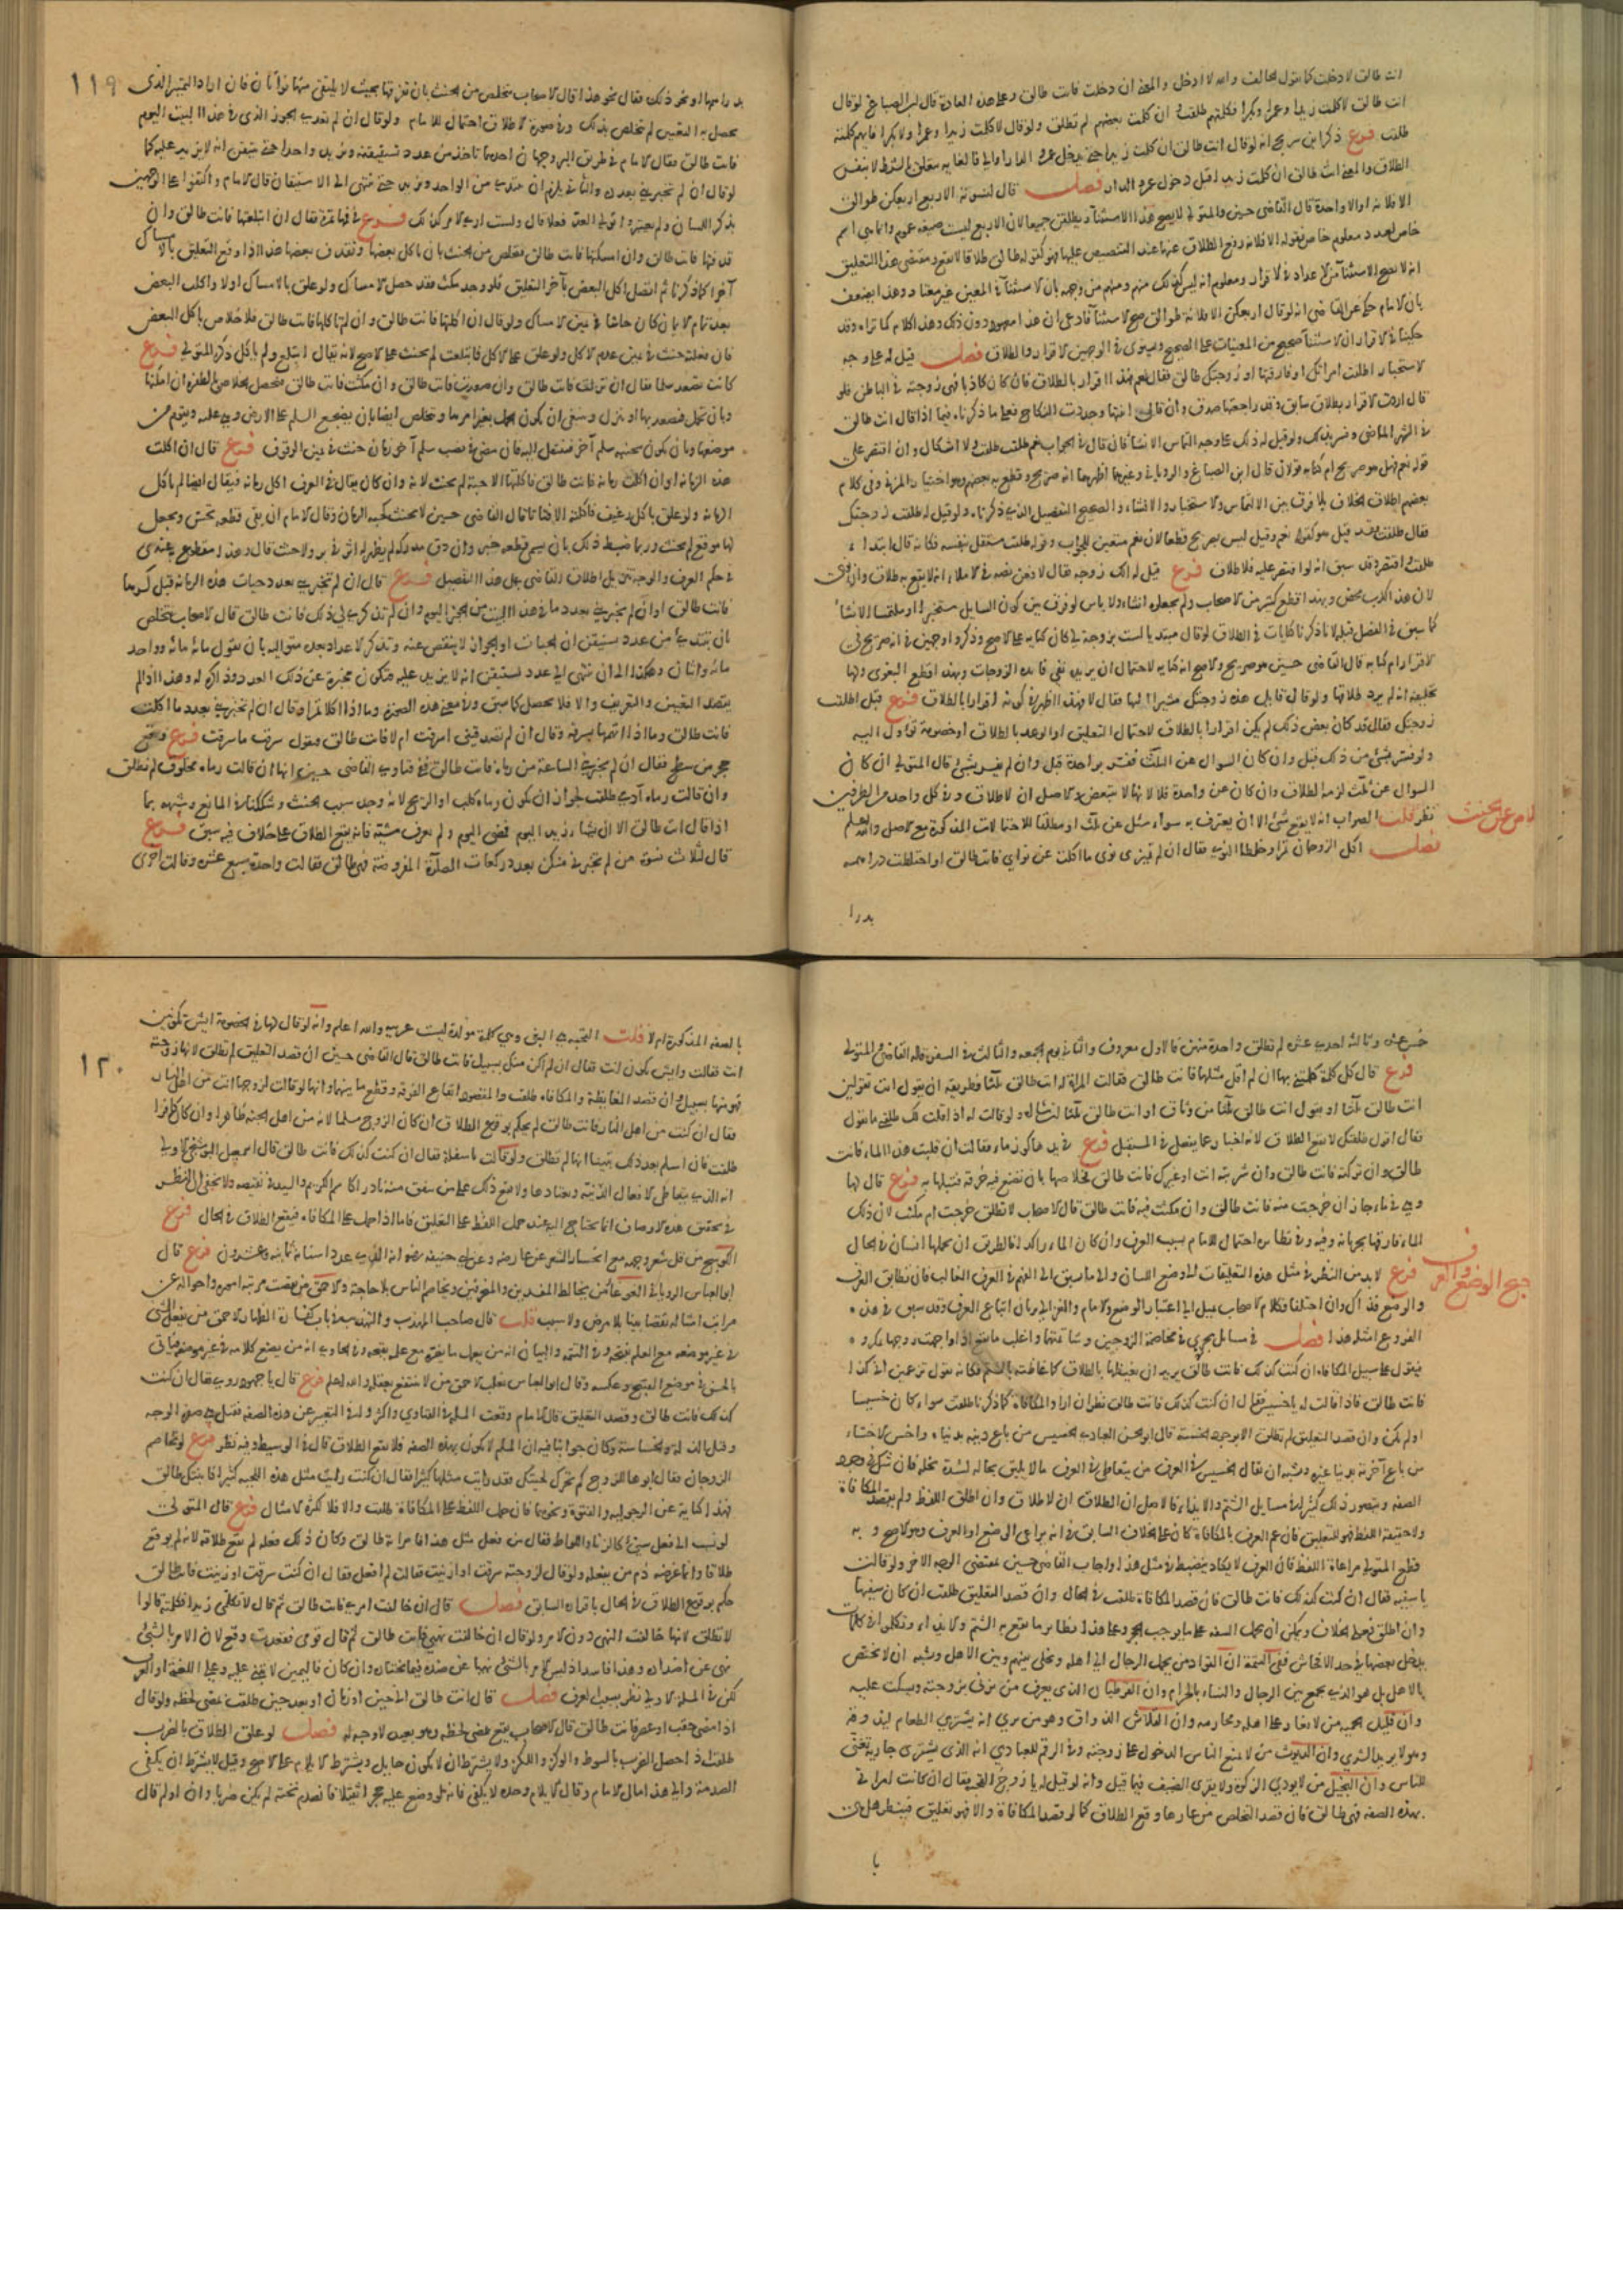 انت طالق لا دخلت كما يقول الحالف والله لا ادخل والمعنى ان دخلت فانت طالق وعلى هذه العادة قال ابن الصباغ لو قال
انت طالق لا كلمت زيدا وعمرا وبكرا فكلمتهم طلقت وان كلمت بعضهم لم تطلق ولو قال لا كلمت زيدا ولا عمرا ولا بكرا فايهم كلمته
طلقت فرع ذكر ابن سريج انه لو قال انت طالق ان كلمت زيدا حتى يدخل عمرو الدار او الى فالغاية متعلق بالشرط لا بنفس
الطلاق والمعنى انت طالق ان كلمت زيدا قبل دخول عمرو الدار فصل قال لنسوته الاربع اربعكن طوالق
الا فلانة او الا واحدة قال القاضي حسين والمتولي لا يصح هذا الاستثناء ويطلقن جميعا لان الاربع ليست صيغة عموم وانما هي اسم
خاص لعدد معلوم خاص فقوله الا فلانة رفع للطلاق عنها بعد التنصيص عليها فهو كقوله طالق طلاقا لا يقع ومقتضى هذا التعليل
ان لا يصح الاستثناء من الاعداد في الاقرار ومعلوم انه ليس كذلك منهم ومنهم من وجهه بان الاستثناء في المعين غير معتاد وهذا يضعف
بان الامام حكى عن القاضي انه لو قال اربعكن الا فلانة طوالق صح الاستثناء فادعى ان هذا معهود دون ذلك وهذا الكلام كما تراه وقد
حكينا في الاقرار ان الاستثناء صحيح من المعينات على الصحيح وسوى في الوجهين الاقرار والطلاق فصل قيل له على وجه
الاستخبار اطلقت امراتك او فارقتها او زوجتك طالق فقال نعم فهذا اقرار بالطلاق فان كان كاذبا فهي زوجته في الباطن فلو
قال اردت الاقرار بطلاق سابق وقد راجعتها صدق وان قال ابنتها وجددت النكاح فعلى ما ذكرناه فيما اذا قال انت طالق
في الشهر الماضي وفسر بذلك ولو قيل له ذلك على وجه التماس الانشاء فان قال في الجواب نعم طلقت طلقت بلا اشكال وان اقتصر على
قوله نعم فهل هو صريح ام كناية قولان قال ابن الصباغ والروياني وغيرهما اظهرهما انه صريح وقطع به بعضهم وهو اختيار المزني وفي كلام
بعضهم اطلاق الخلاف بلا فرق بين الالتماس والاستخبار والانشاء والصحيح التفصيل الذي ذكرناه ولو قيل له طلقت زوجتك
فقال طلقت فقد قيل هو كقوله نعم وقيل ليس بصريح قطعا لان نعم متعين للجواب وقوله طلقت مستقل بنفسه فكانه قال ابتداء
طلقت واقتصر وقد سبق انه لو اقتصر عليه فلا طلاق فرع قيل له الك زوجة فقال لا فعن نصه في الاملاء انه لا يقع به طلاق وان نوى
لان هذا الكذب محض وبهذا قطع كثير من الاصحاب ولم يجعلوه انشاء ولا باس لو فرق بين كون السايل مستخبرا او ملتمسا الانشاء
كما سبق في الفصل قبله لانا ذكرنا كنايات في الطلاق لو قال مبتديا لست بزوجة لي كان كناية على الاصح وذكروا وجهين في انه صريح في
الاقرار ام كناية قال القاضي حسين هو صريح والاصح انه كناية لاحتمال ان يريد نفي فايدة الزوجات وبهذا قطع البغوي ولها
تحليفه انه لم يرد طلاقها ولو قال قايل هذه زوجتك مشيرا اليها فقال لا فهذا اظهر في كونه اقرارا بالطلاق فرع قيل اطلقت
زوجتك فقال قد كان بعض ذلك لم يكن اقرارا بالطلاق لاحتمال التعليق او الوعد بالطلاق او خصومة تؤول اليه
ولو فسر بشيء من ذلك قبل وان كان السؤال عن الثلث ففسر بواحدة قبل وان لم يفسر بشيء قال المتولي ان كان
السؤال عن ثلث لزمه الطلاق وان كان عن واحدة فلا لانها لا تتبعض والاصل ان لا طلاق وفي كل واحد من الطرفين
نظر قلت الصواب انه لا يقع شيء الا ان يعترف به سواء سئل عن ثلث او مطلقا للاحتمالات المذكورة مع الاصل والله اعلم
فصل اكل الزوجان تمرا وخلطا النوى فقال ان لم تميزي نوى ما اكلت عن نواي فانت طالق او اختلطت دراهمه
بدرا
الخلاص عن الحنث
١١٩
بدراهمها او نحو ذلك فقال نحو هذا قال الاصحاب يتخلص من الحنث بان تفرقها بحيث لا يلتقي منها نواتان فان اراد التمييز الذي
يحصل به التعيين لم تتخلص بذلك وفي صورة الاطلاق احتمال للامام ولو قال ان لم تعدي الجوز الذي في هذا البيت اليوم
فانت طالق فقال الامام في طريق البر وجهان احدهما تاخذ من عدد تستيقنه وتزيد واحدا حتى تتيقن انه لا يزيد عليه كما
لو قال ان لم تخبريني بعدده والثاني يلزم ان تبتدي من الواحد وتزيد حتى تنتهي الى الاستيقان قال الامام واكتفوا على الوجهين
بذكر اللسان ولم يعتبروا تولي العد فعلا قال ولست ارى الامر كذلك فرع في فيها تمرة فقال ان ابتلعتها فانت طالق وان
قذفتها فانت طالق وان امسكتها فانت طالق فتخلص من الحنث بان تاكل بعضها وتقذف بعضها هذا اذا وقع التعليق بالامساك
آخرا كما ذكرنا ثم اتصل اكل البعض بآخر التعليق فلو وجد مكث فقد حصل الامساك ولو علق بالامساك اولا واكلت البعض
بعد تمام الايمان كان حانثا في يمين الامساك ولو قال ان اكلتها فانت طالق وان لم تاكلها فانت طالق فلا خلاص باكل البعض
فان فعلته حنث في يمين عدم الاكل ولو علق على الاكل فابتلعت لم يحنث على الاصح لانه يقال ابتلع ولم ياكل ذكره المتولي فرع
كانت تصعد سلما فقال ان نزلت فانت طالق وان صعدت فانت طالق وان مكثت فانت طالق فتحصل الخلاص بالطفرة ان امكنها
وبان تحمل فتصعد بها او ينزل وينبغي ان يكون الحمل بغير امرها وتخلص ايضا بان يضجع السلم على الارض وهي عليه وتقوم من
موضعها وبان يكون بجنبه سلم آخر فتنتقل اليه فان مضى في نصب سلم آخر زمان حنث في يمين الوقوف فرع قال ان اكلت
هذه الرمانة او ان اكلت رمانة فانت طالق فاكلتها الا حبة لم يحنث لانه وان كان يقال في العرف اكل رمانة فيقال ايضا لم ياكل
الرمانة ولو علق باكل رغيف فاكلته الا فتاتا قال القاضي حسين لا يحنث كحبة الرمان وقال الامام ان بقي قطعة تحس ويجعل
لها موقع لم يحنث وربما ضبط ذلك بان يسمى قطعة خبز وان دق مدركه لم يظهر له اثر في بر ولا حنث قال وهذا مقطوع به عندي
في حكم العرف والوجه تنزيل اطلاق القاضي على هذا التفصيل فرع قال ان لم تخبريني بعدد حبات هذه الرمانة قبل كسرها
فانت طالق او ان لم تخبريني بعدد ما في هذا البيت من الجوز اليوم وان لم تذكري لي ذلك فانت طالق قال الاصحاب يتخلص
بان تبتدي من عدد تستيقن ان الحبات او الجوز لا ينقص عنه وتذكر الاعداد بعده متوالية بان تقول مائة مائة وواحد
مائة واثنان وهكذا الى ان تنتهي الى عدد تستيقن انه لا يزيد عليه فتكون مخبرة عن ذلك العدد وذاكرة له وهذا اذا لم
يقصد التعيين والتعريف والا فلا يحصل كما سبق وفي معنى هذه الصورة وما اذا اكلا تمرا وقال ان لم تخبريني بعدد ما اكلت
فانت طالق وما اذا اتهمها بسرقة وقال ان لم تصدقيني اسرقت ام لا فانت طالق فتقول سرقت ما سرقت فرع وقع
حجر من سطح فقال ان لم تخبريني الساعة من رماه فانت طالق ففي فتاوى القاضي حسين انها ان قالت رماه مخلوق لم تطلق
وان قالت رماه آدمي طلقت لجواز ان يكون رماه كلب او الريح لانه وجد سبب الحنث وشككنا في المانع وشبهه بما
اذا قال انت طالق الا ان يشاء زيد اليوم فمضى اليوم ولم يعرف مشيته فانه يقع الطلاق على خلاف فيه سبق فرع
قال لثلاث نسوة من لم تخبرني منكن بعدد ركعات الصلاة المفروضة فهي طالق فقالت واحدة سبع عشرة وقالت اخرى
خمس عشرة وثالثة احدى عشرة لم تطلق واحدة منهن فالاول معروف والثاني يوم الجمعة والثالث في السفر قاله القاضي والمتولي
فرع قال كل كلمة كلمتني بها ان لم اقل مثلها فانت طالق فقالت المراة له انت طالق ثلثا فطريقه ان يقول انت تقولين
انت طالق ثلثا او يقول انت طالق ثلثا من وثاق او انت طالق ثلثا ان شاء الله ولو قالت له اذا قلت لك طلقني ما تقول
فقال اقول طلقتك لا يقع الطلاق لانه اخبار عما يفعل في المستقبل فرع في يدها كوز ماء فقال ان قلبت هذا الماء فانت
طالق وان تركته فانت طالق وان شربته انت او غيرك فانت طالق فخلاصها بان تضع فيه خرقة فتبلها به فرع قال لها
وهي في ماء جار ان خرجت منه فانت طالق وان مكثت فيه فانت طالق قال الاصحاب لا تطلق خرجت ام مكثت لان ذلك
الماء فارقها بجريانه وفيه وفي نظايره احتمال للامام بسبب العرف وان كان الماء راكدا فالطريق ان يحملها انسان في الحال
فرع لا بد من النظر في مثل هذه التعليقات الى وضع اللسان والى ما سبق الى الفهم في العرف الغالب فان تطابق العرف
والوضع فذاك وان اختلفا فكلام الاصحاب يميل الى اعتبار الوضع والامام والغزالي يريان اتباع العرف وقد سبق في هذه
الفروع امثلة هذا فصل في مسائل تجري في مخاصمة الزوجين ومشاتمتهما واغلب ما يقع اذا واجهت زوجها بمكروه
فيقول على سبيل المكافاة ان كنت كذلك فانت طالق يريد ان يغيظها بالطلاق كما غاظته بالشتم فكانه يقول تزعمين اني كذا
فانت طالق فاذا قالت له يا خسيس فقال ان كنت كذلك فانت طالق نظر ان اراد المكافاة كما ذكرنا طلقت سواء كان خسيسا
او لم يكن وان قصد التعليق لم تطلق الا بوجود الخسة قال ابو الحسن العبادي الخسيس من باع دينه بدنياه واخس الاخساء
من باع آخرته بدنيا غيره ويشبه ان يقال الخسيس في العرف من يتعاطى في العرف ما لا يليق بحاله لشدة بخله فان شك في وجود
الصفة ويتصور ذلك كثيرا في مسايل الشتم والايذاء فالاصل ان لا طلاق وان اطلق اللفظ ولم يقصد المكافاة
ولا حقيقة اللفظ فهو للتعليق فان عم العرف بالمكافاة كان على الخلاف السابق في انه يراعى الوضع او العرف وهو الاصح وبه
قطع المتولي مراعاة اللفظ فان العرف لا يكاد ينضبط في مثل هذا واجاب القاضي حسين بمقتضى الوجه الاخر ولو قالت
يا سفيه فقال ان كنت كذلك فانت طالق فان قصد المكافاة طلقت في الحال وان قصد التعليق طلقت ان كان سفيها
وان اطلق فعلى الخلاف ويمكن ان يحمل السفه على ما يوجب الحجر وعلى هذا نظاير ما يقع به الشتم والايذاء وتكلموا في كلمات
يدخل بعضها في حد الافحاش ففي التتمة ان القواد من يحمل الرجال الى اهله ويخلي بينهم وبين الاهل ويشبه ان لا يختص
بالاهل بل هو الذي يجمع بين الرجال والنساء بالحرام وان القرطبان الذي يعرف من يزني بزوجته ويسكت عليه
وان قليل الحمية من لا يغار على اهله ومحارمه وان القلاش الذواق وهو من يري انه يشتري الطعام ليذوقه
وهو لا يريد الشري وان الديوث من لا يمنع الناس الدخول على زوجته وفي الرقم للعبادي انه الذي يشتري جارية تغني
للناس وان البخيل من لا يودي الزكاة ولا يقري الضيف فيما قيل وانه لو قيل له يا زوج القحبة فقال ان كانت امراتي
بهذه الصفة فهي طالق فان قصد التخلص من عارها وقع الطلاق كما لو قصد المكافاة والا فهو تعليق فينظر هل هي
با
جمع الوضع والعرف
١٢٠
بالصفة المذكورة ام لا قلت القحبة هي البغي وهي كلمة مولدة ليست عربية والله اعلم وانه لو قال لها في الخصومة ايش تكونين
انت فقالت وايش تكون انت فقال ان لم اكن منك بسبيل فانت طالق قال القاضي حسين ان قصد التعليق لم تطلق لانها زوجته
فهو منها بسبيل وان قصد المغايظة والمكافاة طلقت والمقصود ايقاع الفرقة وقطع ما بينهما وانها لو قالت لزوجها انت من اهل النار
فقال ان كنت من اهل النار فانت طالق لم يحكم بوقوع الطلاق ان كان الزوج مسلما لانه من اهل الجنة ظاهرا وان كان كافرا
طلقت فان اسلم بعد ذلك تبينا انها لم تطلق ولو قالت يا سفلة فقال ان كنت كذلك فانت طالق قال اسمعيل البوشنجي الاولى
انه الذي يتعاطى الافعال الدنية ويعتادها ولا يقع ذلك على من يتفق منه نادرا كاسم الكريم والسيد في نقيضه ولا يخفى ان النظر
في تحقيق هذه الاوصاف انما يحتاج اليه عند حمل اللفظ على التعليق فاما اذا حمل على المكافاة فيقع الطلاق في الحال فرع
الكوسج من قل شعر وجهه مع انحسار الشعر عن عارضيه وعن ابي حنيفة رضي الله عنه انه الذي عدد اسنانه ثمانية وعشرون فرع قال
ابو العباس الروياني الغوغاء من يخالط المفسدين والمنحرفين ويخاصم الناس بلا حاجة والاحمق من نقصت مرتبة اموره واحواله عن
مراتب امثاله نقصا بينا بلا مرض ولا سبب قلت قال صاحبا المهذب والتهذيب في باب كفارة الظهار الاحمق من يفعل الشيء
في غير موضعه مع العلم بقبحه وفي التتمة والبيان انه من يعمل ما يضره مع علمه بقبحه وفي الحاوي انه من يضع كلامه في غير موضعه فياتي
بالحسن في موضع القبيح وعكسه وقال ابو العباس ثعلب الاحمق من لا ينتفع بعقله والله اعلم فرع قال يا جهودروي فقال ان كنت
كذلك فانت طالق وقصد التعليق قال الامام وقعت المسئلة في الفتاوي واكثروا في التعبير عن هذه الصفة فقيل هي صفرة الوجه
وقيل الذلة والخساسة وكان جوابنا فيه ان المسلم لا يكون بهذه الصفة فلا يقع الطلاق قال في الوسيط وفيه نظر فرع لو تخاصم
الزوجان فقال ابوها للزوج كم تحرك لحيتك فقد رايت مثلها كثيرا فقال ان كنت رايت مثل هذه اللحية كثيرا فابنتك طالق
فهذا كناية عن الرجولية والفتوة ونحوهما فان حمل اللفظ على المكافاة طلقت والا فلا لكثرة الامثال فرع قال المتولي
لو نسب الى فعل سيء كالزنا واللواط فقال من فعل مثل هذا فامراته طالق وكان ذلك فعله لم يقع طلاقه لانه لم يوقع
طلاقا وانما غرضه ذم من يفعله ولو قال لزوجته سرقت او زنيت فقالت لم افعل فقال ان كنت سرقت او زنيت فانت طالق
حكم بوقوع الطلاق في الحال باقراره السابق فصل قال ان خالفت امري فانت طالق ثم قال لا تكلمي زيدا فكلمته قالوا
لا تطلق لانها خالفت النهي دون الامر ولو قال ان خالفت نهيي فانت طالق ثم قال قومي فقعدت وقع لان الامر بالشيء
نهي عن اضداده وهذا فاسد اذ ليس الامر بالشيء نهيا عن ضده فيما يختاره وان كان فاليمين لا يبنى عليه وعلى اللغة او العرف
لكن في المسئلة الاولى نظر بسبب العرف فصل قال انت طالق الى حين او زمان او بعد حين طلقت بمضي لحظة ولو قال
اذا مضى حقب او عصر فانت طالق قال الاصحاب يقع بمضي لحظة وهو بعيد لا وجه له فصل لو علق الطلاق بالضرب
طلقت اذا حصل الضرب بالسوط والوكز واللكز ولا يشترط ان لا يكون حايل ويشترط الايلام على الاصح وقيل لا يشترط ان يكفي
الصدمة والى هذا مال الامام وقال الايلام وحده لا يكفي فانه لو وضع عليه حجرا ثقيلا فانصدم تحته لم يكن ضربا وان اولم قال